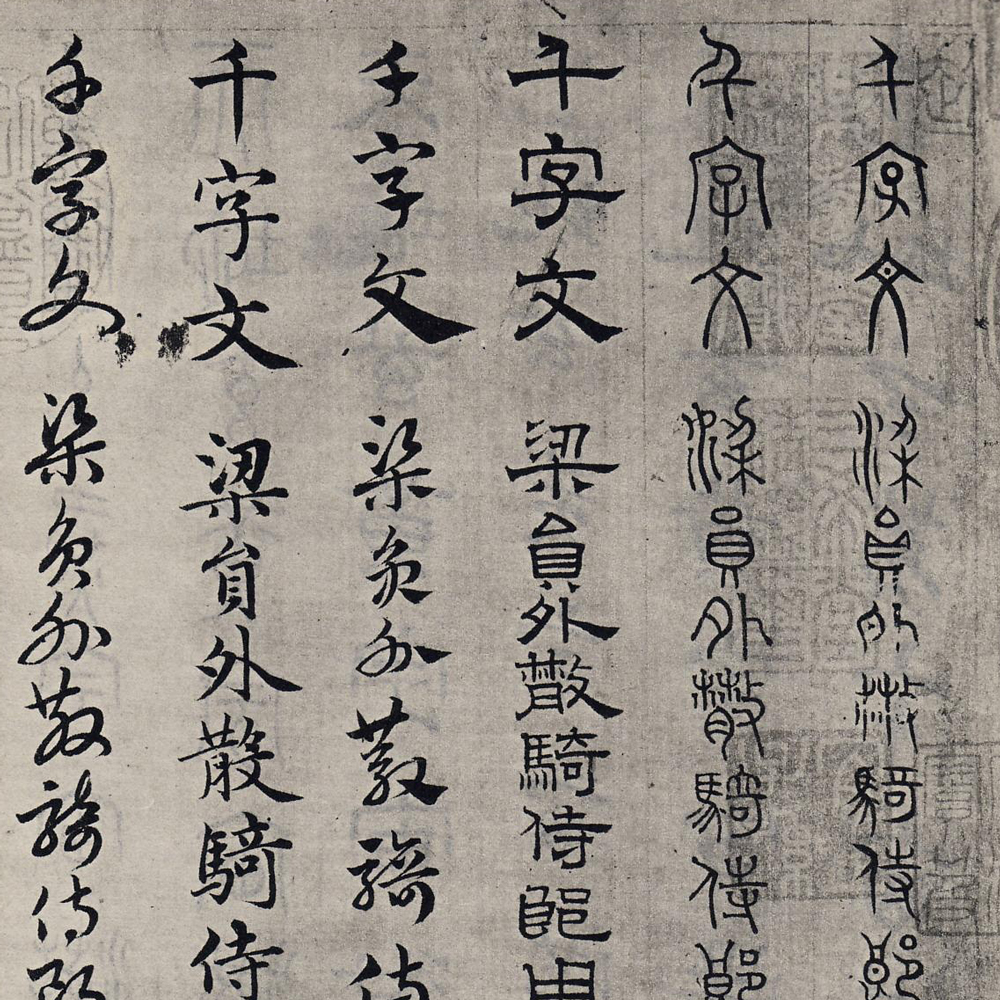 千字文 梁員外散騎侍郎
千字文 梁員外散騎侍郎
千字文 梁員外散騎侍郎周
千字文 梁員外散騎侍
千字文 梁員外散騎侍
千字文 梁員外散騎侍郎